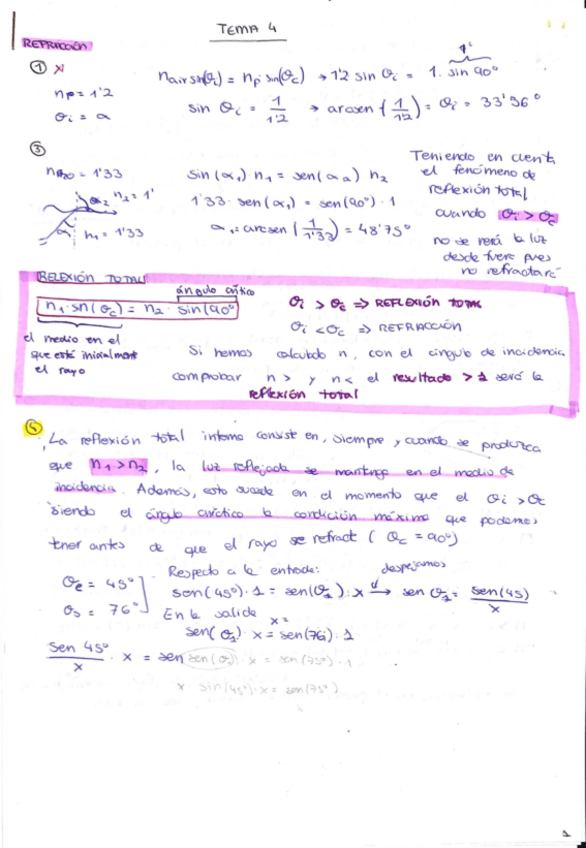 TEMA 4
REFRACCIÓN
① X
n air sin(θi) = np sin(θc) → 1'2 sin θi = 1. sin 90º
1'
np = 1'2
θi = α
sin θi = 1/1'2 → arcsen (1/1'2) = θi = 33'56º
③
nH2O = 1'33
α2 n2 = 1'
α1 n1 = 1'33
sin (α1) n1 = sen(α2) n2
1'33 · sen(α1) = sen(90º) · 1
α1 = arcsen (1/1'33) = 48'75º
Teniendo en cuenta
el fenómeno de
reflexión total
cuando θi > θc
no se verá la luz
desde fuera pues
no refractará
RELEXIÓN TOTAL
ángulo crítico
n1 · sn(θc) = n2 · sin(90º)
el medio en el
que está inicialment
el rayo
θi > θc ⇒ REFLEXIÓN TOTAL
θi < θc ⇒ REFRACCIÓN
Si hemos calculado n, con el ángulo de incidencia
comprobar n> y n< el resultado > 1 será la
reflexión total
La reflexión total interna consist en, siempre y cuando se produzca
que n1 > n2, la luz reflejada se mantenga en el medio de
incidencia. Además, esto sucede en el momento que el θi > θc
siendo el ángulo crítico la condición máxima que podemos
tener antes de que el rayo se refract (θc = 90º)
θe = 45º
θs = 76º
Respecto a la entrada:
despejamos
sen(45º) · 1 = sen(θ2) · x → sen θ2 = sen(45)/x
En la salida
x =
sen( θ2) · x = sen(76) · 1
sen 45º/x · x = sen sen(θ2) · x = sen(75º) · 1
x sin(45º) · x = sen(75º)
1